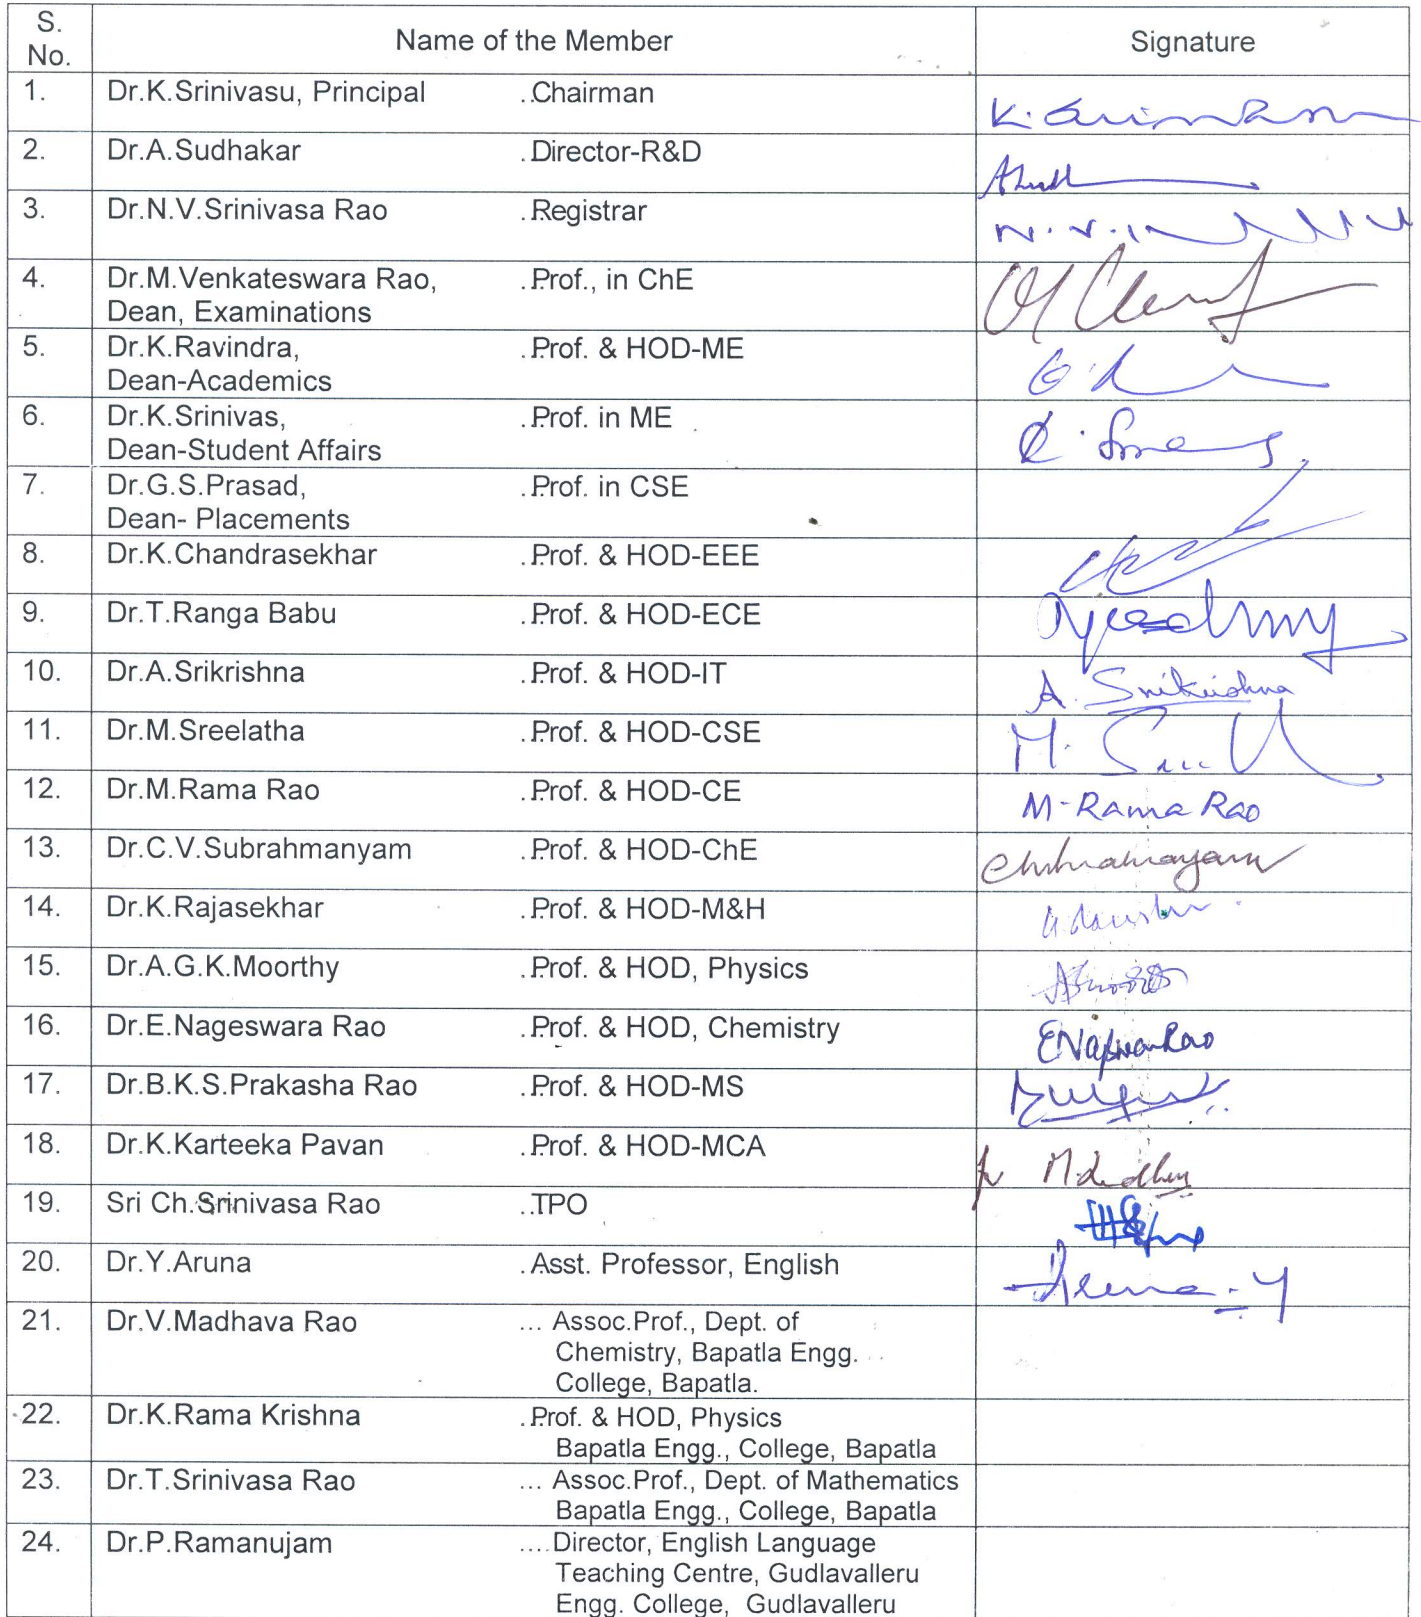 S. No. Name of the Member Signature
1. Dr.K.Srinivasu, Principal ..Chairman
2. Dr.A.Sudhakar .Director-R&D
3. Dr.N.V.Srinivasa Rao .Registrar
4. Dr.M.Venkateswara Rao, .Prof., in ChE
Dean, Examinations
5. Dr.K.Ravindra, .Prof. & HOD-ME
Dean-Academics
6. Dr.K.Srinivas, .Prof. in ME
Dean-Student Affairs
7. Dr.G.S.Prasad, .Prof. in CSE
Dean- Placements
8. Dr.K.Chandrasekhar .Prof. & HOD-EEE
9. Dr.T.Ranga Babu .Prof. & HOD-ECE
10. Dr.A.Srikrishna .Prof. & HOD-IT A. Srikrishna
11. Dr.M.Sreelatha .Prof. & HOD-CSE
12. Dr.M.Rama Rao .Prof. & HOD-CE M-Rama Rao
13. Dr.C.V.Subrahmanyam .Prof. & HOD-ChE
14. Dr.K.Rajasekhar .Prof. & HOD-M&H
15. Dr.A.G.K.Moorthy .Prof. & HOD, Physics
16. Dr.E.Nageswara Rao .Prof. & HOD, Chemistry
17. Dr.B.K.S.Prakasha Rao .Prof. & HOD-MS
18. Dr.K.Karteeka Pavan .Prof. & HOD-MCA
19. Sri Ch.Srinivasa Rao ..TPO
20. Dr.Y.Aruna .Asst. Professor, English
21. Dr.V.Madhava Rao ... Assoc.Prof., Dept. of
Chemistry, Bapatla Engg.
College, Bapatla.
22. Dr.K.Rama Krishna .Prof. & HOD, Physics
Bapatla Engg., College, Bapatla
23. Dr.T.Srinivasa Rao ... Assoc.Prof., Dept. of Mathematics
Bapatla Engg., College, Bapatla
24. Dr.P.Ramanujam ....Director, English Language
Teaching Centre, Gudlavalleru
Engg. College, Gudlavalleru